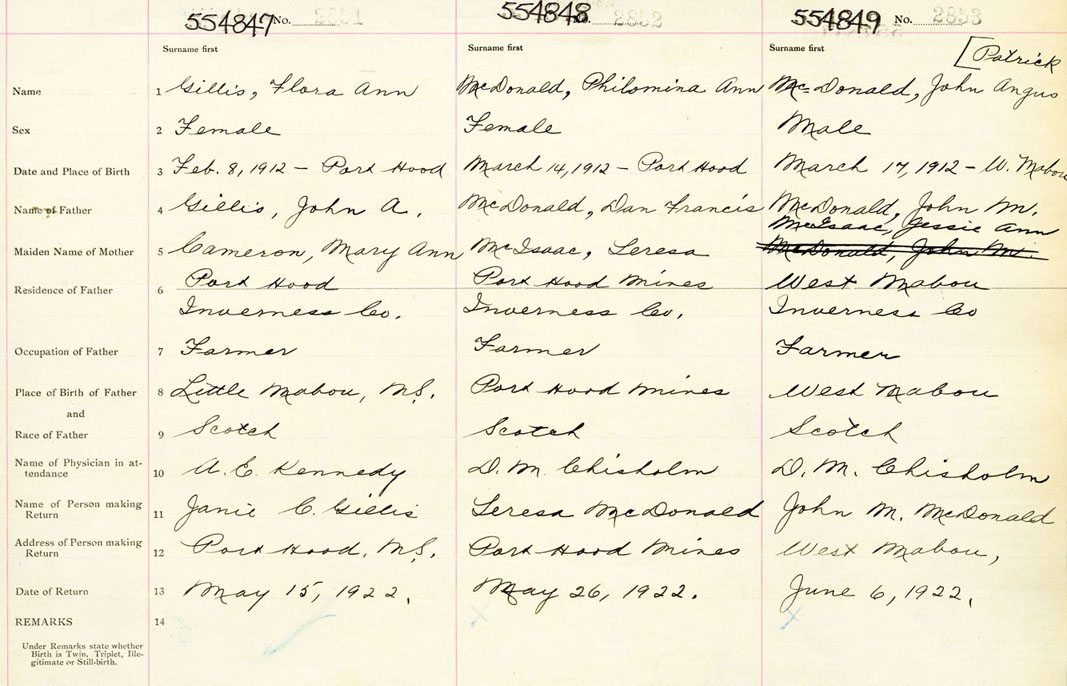 554847 No.
554848 No. 2852
554849 No. 2853
Surname first Surname first Surname first [Patrick
Name 1 Gillis, Flora Ann McDonald, Philomina Ann McDonald, John Angus
Sex 2 Female Female Male
Date and Place of Birth 3 Feb. 8, 1912 – Port Hood March 14, 1912 – Port Hood March 17, 1912 – W. Mabou
Name of Father 4 Gillis, John A. McDonald, Dan Francis McDonald, John M.
McIsaac, Jessie Ann
Maiden Name of Mother 5 Cameron, Mary Ann McIsaac, Teresa McDonald, John M.
Residence of Father 6 Port Hood Port Hood Mines West Mabou
Inverness Co. Inverness Co. Inverness Co
Occupation of Father 7 Farmer Farmer Farmer
Place of Birth of Father 8 Little Mabou, N.S. Port Hood Mines West Mabou
and
Race of Father 9 Scotch Scotch Scotch
Name of Physician in at-
tendance 10 A. E. Kennedy D. M. Chisholm D. M. Chisholm
Name of Person making
Return 11 Janie C. Gillis Teresa McDonald John M. McDonald
Address of Person making
Return 12 Port Hood, N.S. Port Hood Mines West Mabou,
Date of Return 13 May 15, 1922. May 26, 1922. June 6, 1922.
REMARKS 14
Under Remarks state whether
Birth is Twin, Triplet, Ille-
gitimate or Still-birth.